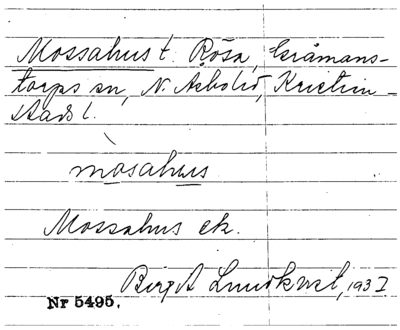 Mossahus t. Röså, Gråmans-
torps sn, N. Åsbo hd, Kristian-
stads l.
mosahus
Mossahus ek.
Birgit Lundkvist, 1932
Nr 5495.